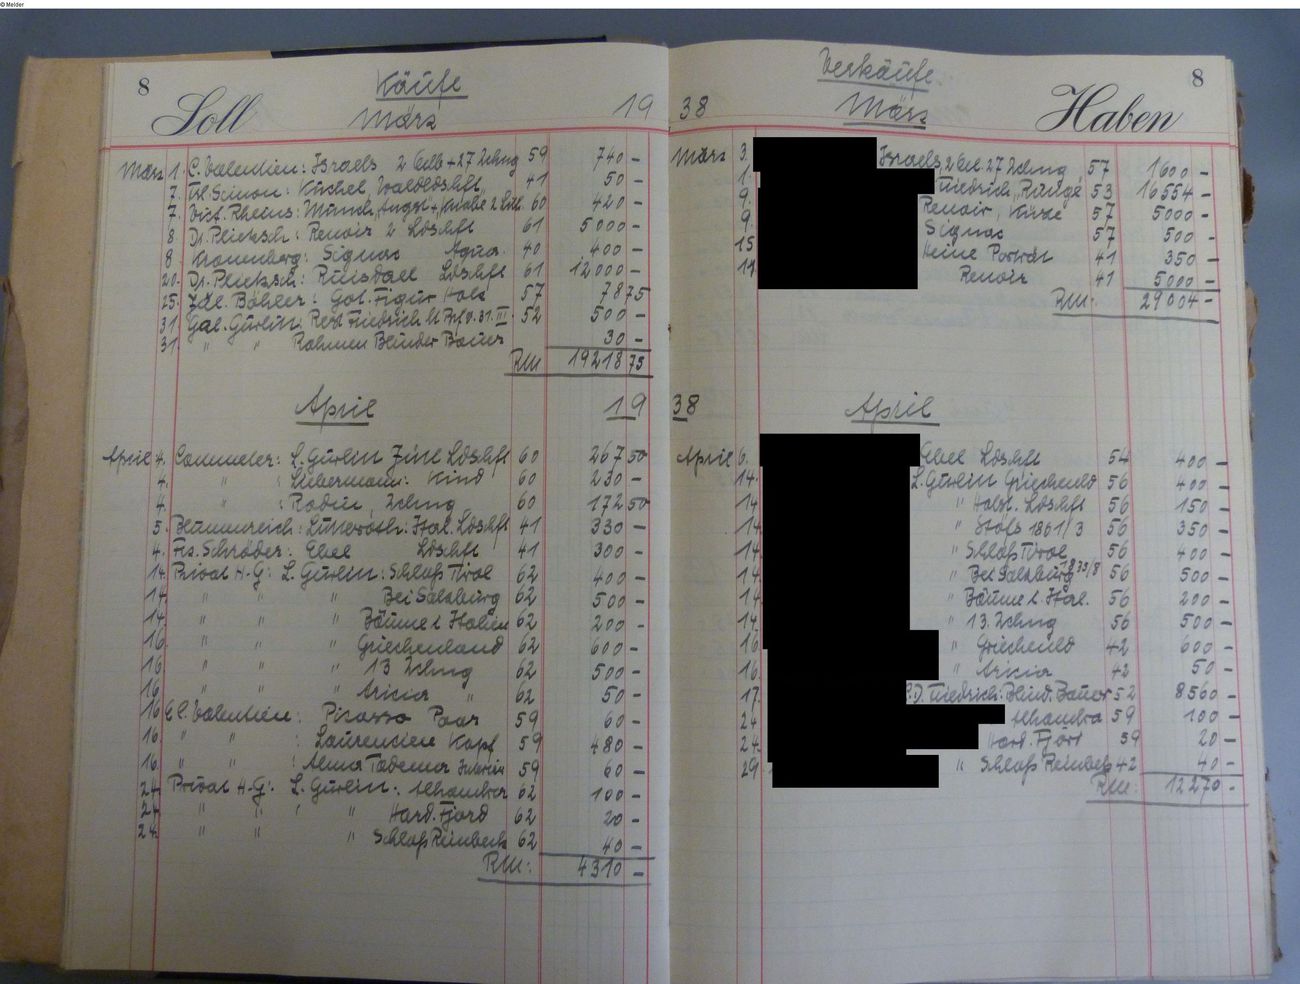 © Melder
8 Käufe
Soll März 19
März 1. C. Valentien: Israels 2 Gelb + 27 Zchng 59 740 -
7. Simon: Küchel, Waldldshft 41 50 -
7. Rheins: Münch, Angst + 2 60 420 -
8 Dr. Plietzsch: Renoir 2 Ldshft 61 5000 -
8. Kronenberg: Signac Aqua. 40 400 -
20. Dr. Plietzsch: Ruisdael Ldshft 61 12000 -
25. Böhler: Got. Figur Holz 57 78 75
31. Gal. Gurlitt: Rest Friedrich lt 31. III 52 500 -
31. " " Rahmen Blinder Bauer 30 -
RM 19218 75
April 19
April 4. Commeter: L. Gurlitt Ldshft 60 267 50
4. " : Liebermann: Kind 60 230 -
4. " : Rodin, Zchng 60 172 50
5. Blumenreich: Ital. Ldshft 41 330 -
4. Frs. Schröder: Ebel Ldshft 41 300 -
14. Privat H-G: L. Gurlitt: Schloß Tirol 62 400 -
14 " " " Bei Salzburg 62 500 -
14 " " " Bäume i Italien 62 200 -
16. " " " Griechenland 62 600 -
16 " " " 13 Zchng 62 500 -
16 " " " Aricia " 62 50 -
16 C. Valentien: Picasso Paar 59 60 -
16. " " : Laurencien Kopf 59 480 -
16. " " : Alma Tadema 59 60 -
24 Privat H-G: L. Gurlitt: Alhambra 62 100 -
24 " " " " Hard. Fjord 62 20 -
24. " " " Schloß Reinbeck 62 40 -
RM: 4310 -
Verkäufe 8
38 März Haben
März 3. Israels, 2 Gel. 27 Zchng 57 1600 -
1. Friedrich, Runge 53 16554 -
9. Renoir, 57 5000 -
9. Signac 57 500 -
15 Heine Porträt 41 350 -
Renoir 41 5000 -
RM: 29004 -
38 April
April 6. Ebel Ldshft 54 400 -
14. L. Gurlitt Griechenld 56 400 -
14 " Holst. Ldshft 56 150 -
14 " Stoffs 1861/3 56 350 -
14. " Schloß Tirol 56 400 -
14. " Bei Salzburg 1835/8 56 500 -
14. " Bäume i Ital. 56 200 -
14. " 13. Zchng 56 500 -
16. " Griechenld 42 600 -
16. " Aricia 42 50 -
17. C.D. Friedrich: Blind. Bauer 52 8560 -
24 Alhambra 59 100 -
24. Hard. Fjord 59 20 -
29 " Schloß Reinbek 42 40 -
RM: 12270 -